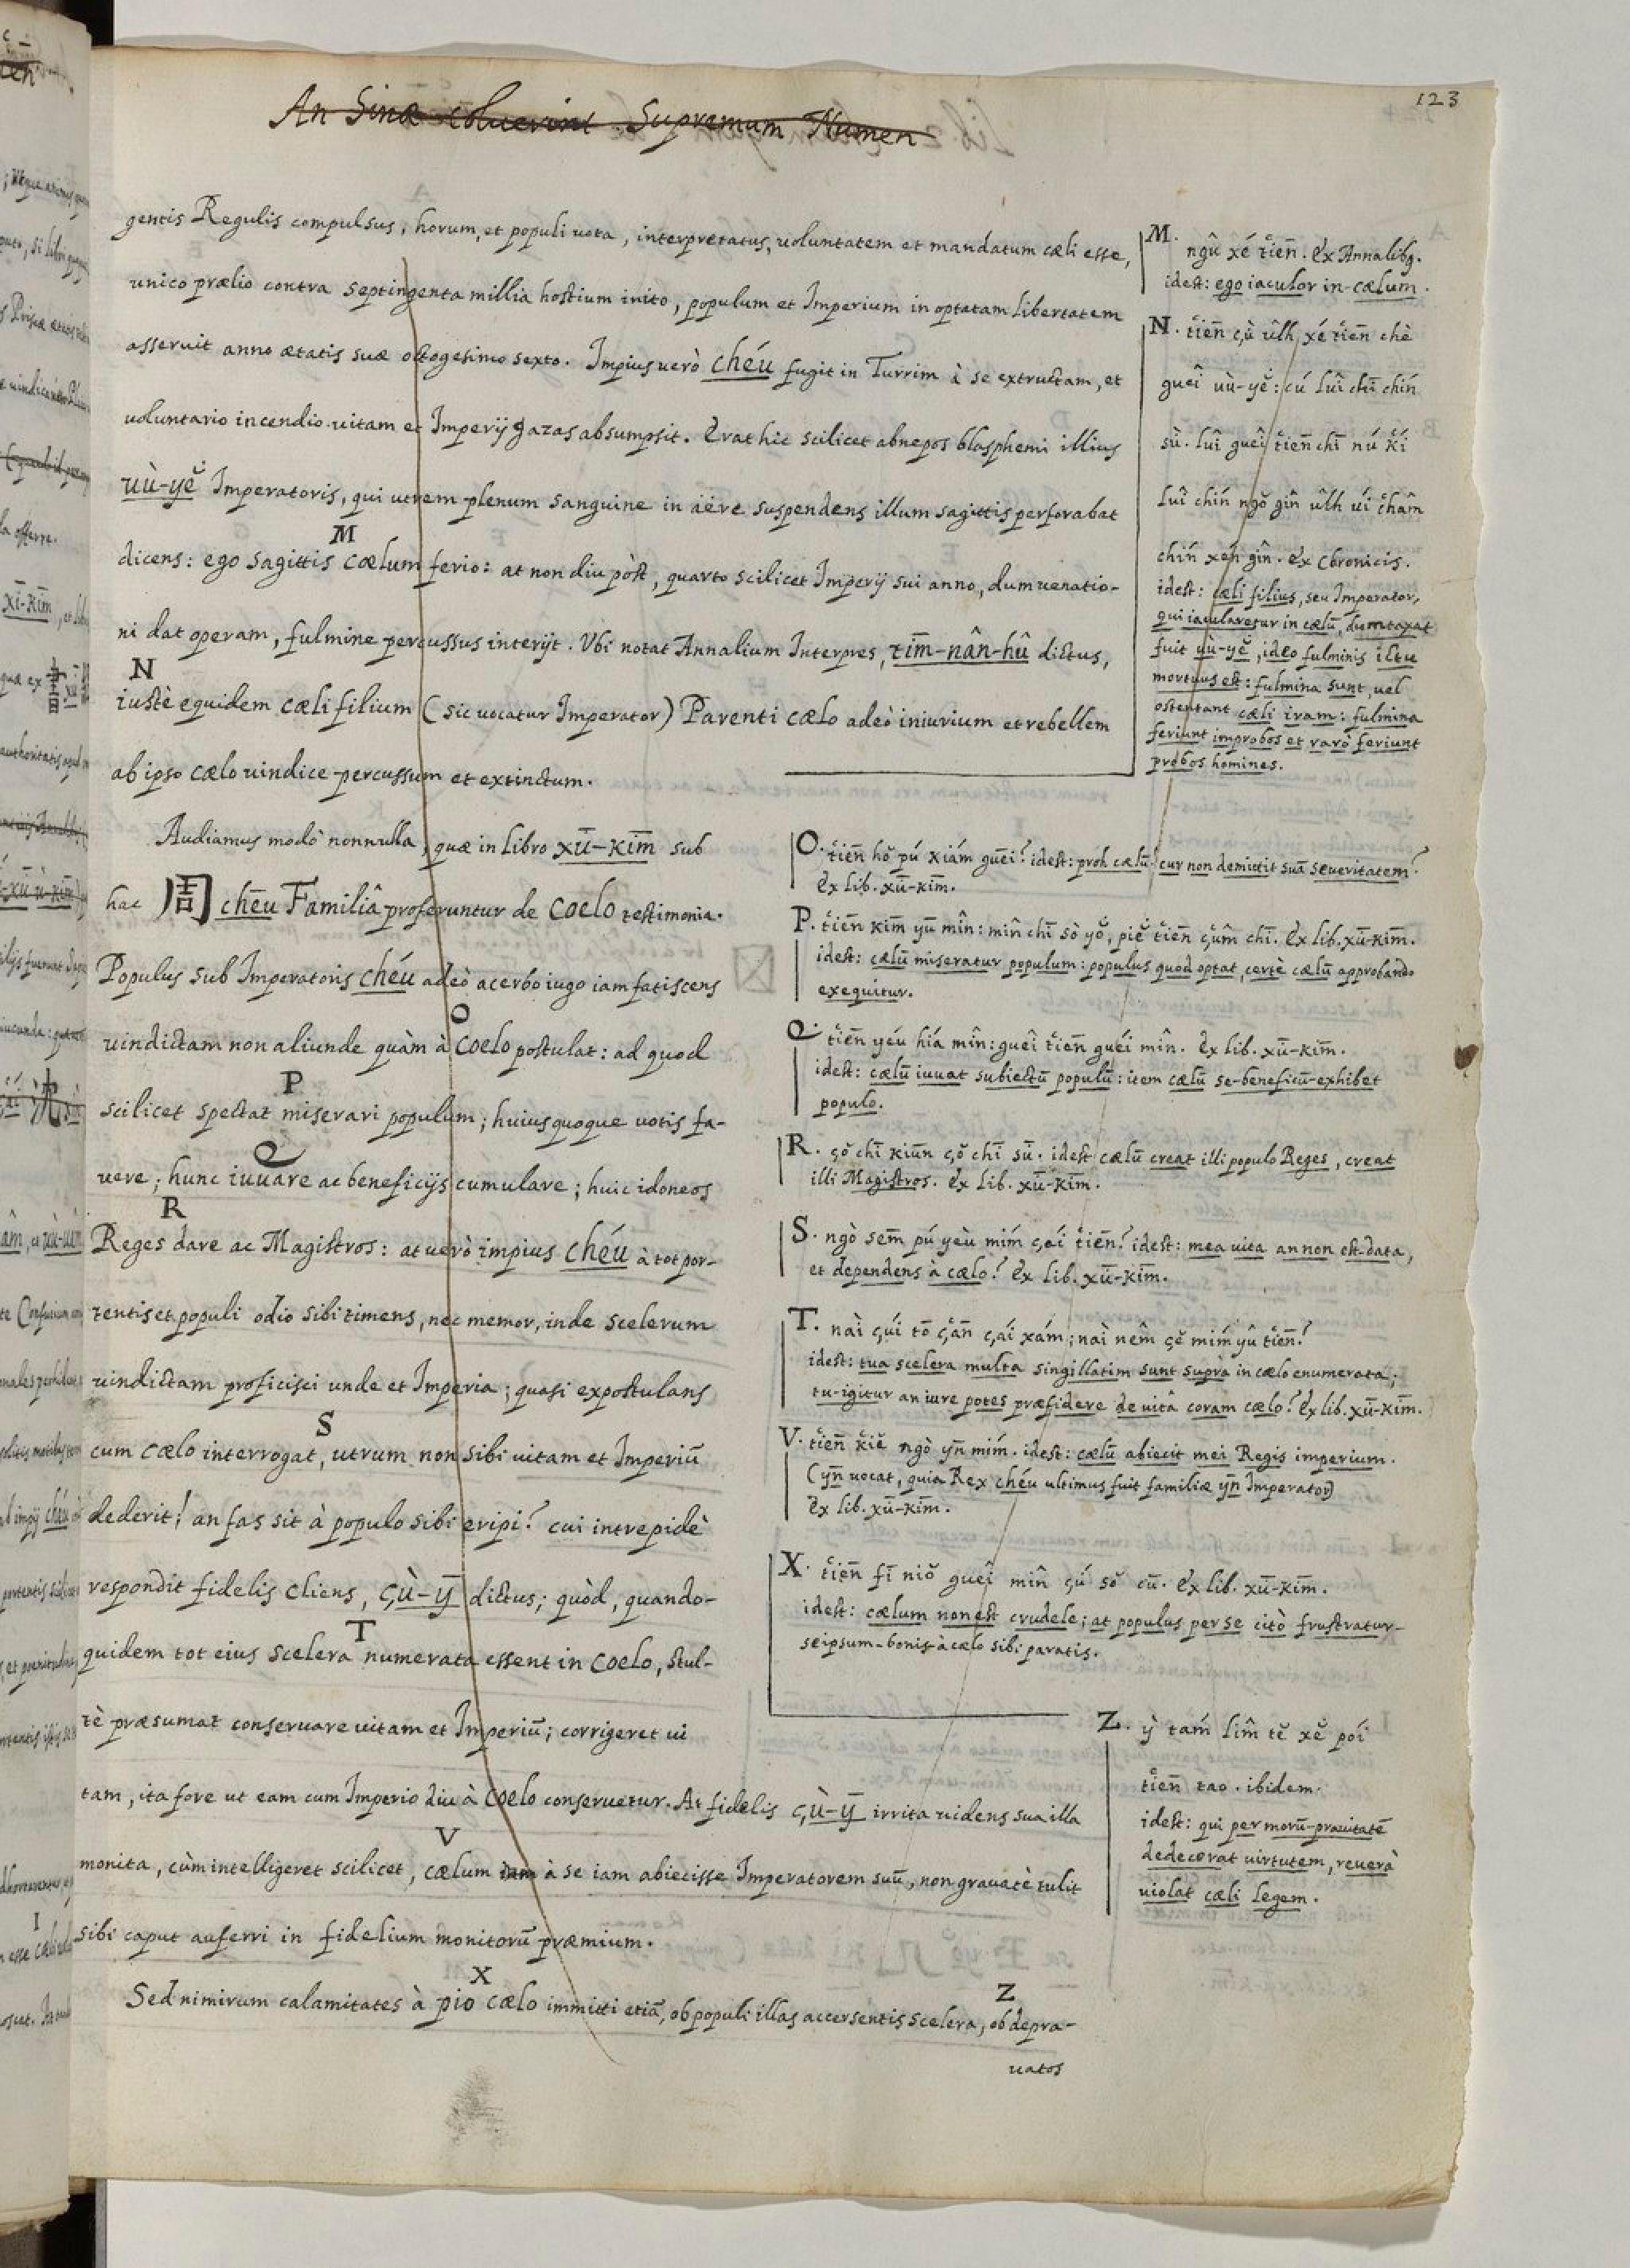 123
An Sinæ coluerint Supremum Numen
gentis Regulis compulsus, horum, et populi uota, interpretatus, uoluntatem et mandatum cæli esse,
unico prælio contra septingenta millia hostium inito, populum et Imperium in optatam libertatem
asseruit anno ætatis suæ octogesimo sexto. Impius uerò chéu fugit in Turrim à se extructam, et
uoluntario incendio uitam et Imperij gazas absumpsit. Erat hic scilicet abnepos blasphemi illius
uù-yĕ Imperatoris, qui utrem plenum sanguine in aëre suspendens illum sagittis perforabat
M
dicens: ego sagittis cœlum ferio: at non diu pòst, quarto scilicet Imperij sui anno, dum uenatio-
ni dat operam, fulmine percussus interijt. Vbi notat Annalium Interpres, tim̄-nân-hû dictus,
N
iustè equidem cæli filium (sic uocatur Imperator) Parenti cælo adeò iniurium et rebellem
ab ipso cælo uindice percussum et extinctum.
Audiamus modò nonnulla, quæ in libro xū-kim̄ sub
hac 周 chēu Familiâ proferuntur de Coelo testimonia.
Populus sub Imperatoris chéu adeò acerbo iugo iam fatiscens
O
uindictam non aliunde quàm à Coelo postulat: ad quod
P
scilicet spectat miserari populum; huius quoque uotis fa-
Q
uere; hunc iuuare ac beneficijs cumulare; huic idoneos
R
Reges dare ac Magistros: at uerò impius chéu à tot por-
tentis et populi odio sibi timens, nec memor, inde scelerum
uindictam proficisci unde et Imperia; quasi expostulans
S
cum cælo interrogat, utrum non sibi uitam et Imperiū
dederit! an fas sit à populo sibi eripi? cui intrepidè
respondit fidelis cliens, çù-ȳ dictus; quòd, quando-
T
quidem tot eius scelera numerata essent in coelo, stul-
tè præsumat conseruare uitam et Imperiū; corrigeret ui
tam, ita fore ut eam cum Imperio diu à coelo conseruetur. At fidelis çù-ȳ irrita uidens sua illa
V
monita, cùm intelligeret scilicet, cælum iam à se iam abiecisse Imperatorem suū, non grauatè tulit
sibi caput auferri in fidelium monitorū præmium.
X Z
Sed nimirum calamitates à pio cælo immitti etiā, ob populi illas accersentis scelera, ob depra-
uatos
M. ngû xé tien̄. Ex Annalibq.
idest: ego iaculor in cælum.
N. tien̄ çù ûlh xé tien̄ chè
gueî uù-yĕ: cú luî chī chín
sù. luî gueî tien̄ chī nú kí
luî chín ngŏ gîn ûlh úi chām
chín xén gîn. ex Chronicis.
idest: cæli filius, seu Imperator,
qui iacularetur in cælū, dumtaxat
fuit uù-yĕ, ideo fulminis ictu
mortuus est: fulmina sunt, uel
ostentant cæli iram: fulmina
feriunt improbos et rarò feriunt
probos homines.
O. tien̄ hŏ pú kiám guēi? idest: proh cælū! cur non demittit suā seueritatem?
Ex lib. xū-kim̄.
P. tien̄ kim̄ yū mîn: mîn chī sò yŏ, piĕ tien̄ çûm chī. Ex lib. xū-kim̄.
idest: cælū miseratur populum: populus quod optat, certè cælū approbando
exequitur.
Q. tien̄ yéu hía mîn: gueî tien̄ guéi mîn. Ex lib. xū-kim̄.
idest: cælū iuuat subiectū populū: item cælū se-beneficū-exhibet
populo.
R. çŏ chī kiūn çŏ chī sū. idest cælū creat illi populo Reges, creat
illi Magistros. Ex lib. xū-kim̄.
S. ngò sem̄ pú yèu mím çái tien̄? idest: mea uita an non est data,
et dependens à cælo? Ex lib. xū-kim̄.
T. nài çúi tō çān çái xám; naì nêm çĕ mím yû tien̄?
idest: tua scelera multa singillatim sunt suprà in cælo enumerata;
tu-igitur an iure potes præfidere de uitâ coram cælo? Ex lib. xū-kim̄.
V. tien̄ kiĕ ngò yn̄ mím. idest: cælū abiecit mei Regis imperium.
(yn̄ uocat, quia Rex chéu ultimus fuit familiæ yn̄ Imperator)
Ex lib. xū-kim̄.
X. tien̄ fī niŏ gueî mîn çú sŏ cū. Ex lib. xū-kim̄.
idest: cælum non est crudele; at populus per se citò frustratur
seipsum-bonis-à cælo sibi paratis.
Z. ỳ tám lîm tĕ xĕ pói
tien̄ tao. ibidem.
idest: qui per morū-prauitatē
dedecorat uirtutem, reuerà
uiolat cæli legem.